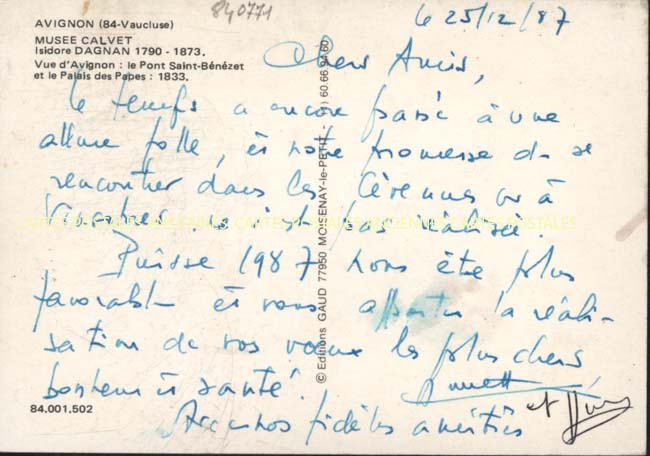 840771
AVIGNON (84-Vaucluse)
MUSEE CALVET
Isidore DAGNAN 1790 - 1873.
Vue d'Avignon : le Pont Saint-Bénézet
et le Palais des Papes : 1833.
le 25/12/87
Chers Amis,
le temps a encore passé à une
allure folle, et notre promesse de se
rencontrer dans les Cévennes ou à
ne s'est pas réalisée.
Puisse 1987 nous être plus
favorable et vous apporter la réali-
sation de vos vœux les plus chers
bonheur et santé.
Avec nos fidèles amitiés
et
84.001.502
© Editions GAUD 77950 MOISENAY-le-PETIT - 60.66.94.60